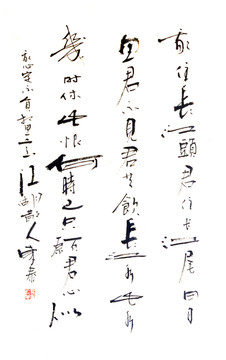 我住長江頭君住长江尾日日
思君不見君共飲長江水此水
幾时休此恨何時已只願君心似
我心定不負相思意 江湖散人